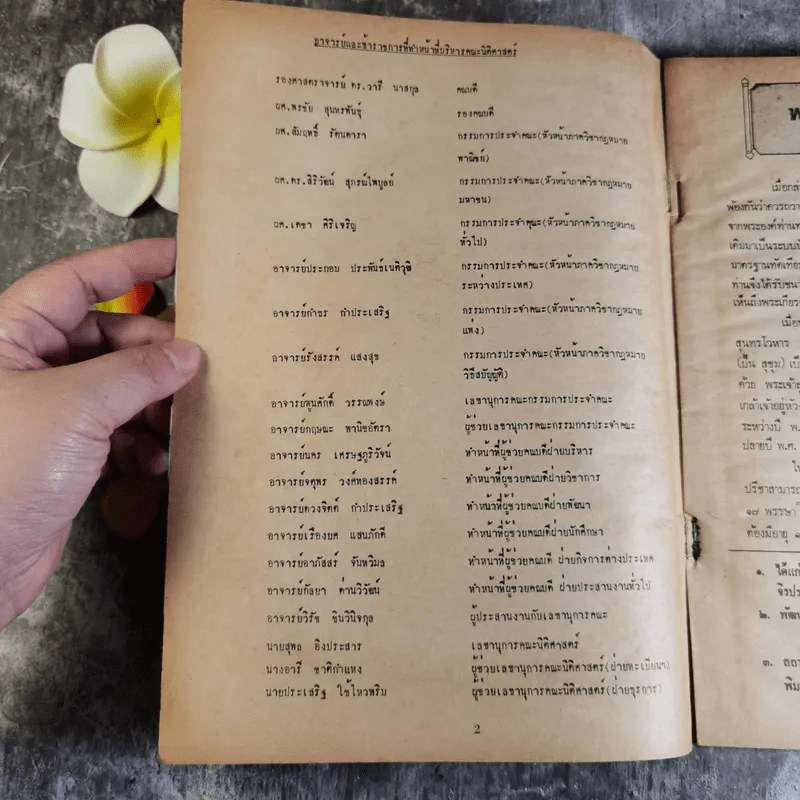 อาจารย์และข้าราชการที่ทำหน้าที่บริหารคณะนิติศาสตร์
รองศาสตราจารย์ ดร.วารี นาสกุล คณบดี
ผศ.พรชัย สุนทรพันธุ์ รองคณบดี
ผศ.สัมฤทธิ์ รัตนดารา กรรมการประจำคณะ(หัวหน้าภาควิชากฎหมาย
พาณิชย์)
ผศ.ดร.สิริวัฒน์ สุภรณ์ไพบูลย์ กรรมการประจำคณะ(หัวหน้าภาควิชากฎหมาย
มหาชน)
ผศ.เดชา ศิริเจริญ กรรมการประจำคณะ(หัวหน้าภาควิชากฎหมาย
ทั่วไป)
อาจารย์ประกอบ ประพันธ์เนติวุฒิ กรรมการประจำคณะ(หัวหน้าภาควิชากฎหมาย
ระหว่างประเทศ)
อาจารย์กำธร กำประเสริฐ กรรมการประจำคณะ(หัวหน้าภาควิชากฎหมาย
แพ่ง)
อาจารย์รังสรรค์ แสงสุข กรรมการประจำคณะ(หัวหน้าภาควิชากฎหมาย
วิธีสบัญญัติ)
อาจารย์พูนศักดิ์ วรรณพงษ์ เลขานุการคณะกรรมการประจำคณะ
อาจารย์กฤษณะ พานิชอัตรา ผู้ช่วยเลขานุการคณะกรรมการประจำคณะ
อาจารย์นคร เศรษฐภูริวัจน์ ทำหน้าที่ผู้ช่วยคณบดีฝ่ายบริหาร
อาจารย์จตุพร วงศ์ทองสรรค์ ทำหน้าที่ผู้ช่วยคณบดีฝ่ายวิชาการ
อาจารย์ดวงจิตต์ กำประเสริฐ ทำหน้าที่ผู้ช่วยคณบดีฝ่ายพัฒนา
อาจารย์เรืองยศ แสนภักดี ทำหน้าที่ผู้ช่วยคณบดีฝ่ายนักศึกษา
อาจารย์อาภัสสร์ จันทวิมล ทำหน้าที่ผู้ช่วยคณบดี ฝ่ายกิจการต่างประเทศ
อาจารย์กัลยา ด่านวิวัฒน์ ทำหน้าที่ผู้ช่วยคณบดี ฝ่ายประสานงานทั่วไป
อาจารย์วิรัช ชินวินิจกุล ผู้ประสานงานกับเลขานุการคณะ
นายสุพล อิงประสาร เลขานุการคณะนิติศาสตร์
นางอารี ชาติกำแหง ผู้ช่วยเลขานุการคณะนิติศาสตร์(ฝ่ายทะเบียนฯ)
นายประเสริฐ ใช้ไหวพริบ ผู้ช่วยเลขานุการคณะนิติศาสตร์(ฝ่ายธุรการ)
2
พ
เมื่อกล่
พ้องกันว่าควรถวา
จากพระองค์ท่านท
เดิมมาเป็นระบบนั
มาตรฐานทัดเทีย
ท่านจึงได้รับขนา
เห็นถึงพระเกียร
เมื่อ
สุนทรโวหาร
(ปั้น สุขุม) เป็
ด้วย พระเจ้าล
เกล้าเจ้าอยู่หัว
ระหว่างปี พ.
ปลายปี พ.ศ.
ใ
ปรีชาสามารถ
๑๗ พรรษา
ต้องมีอายุ
๑. ได้แก่
จิรปร
๒. พัฒน
๓. สถา
พิม